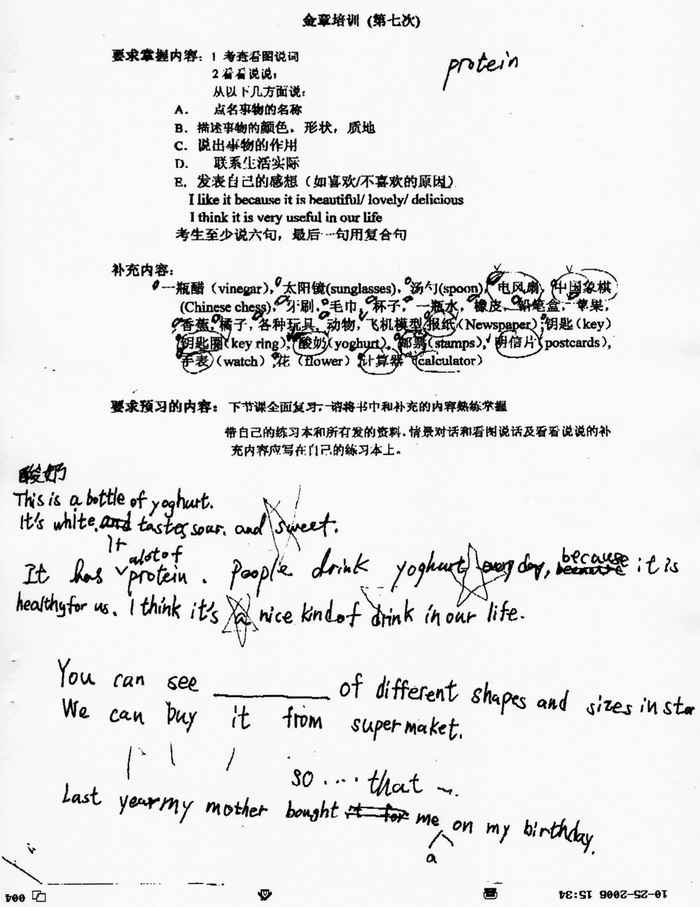 金章培训 (第七次)
要求掌握内容: 1 考查看图说词
protein
2 看看说说:
从以下几方面说:
A. 点名事物的名称
B. 描述事物的颜色, 形状, 质地
C. 说出事物的作用
D. 联系生活实际
E. 发表自己的感想 (如喜欢/不喜欢的原因)
I like it because it is beautiful/ lovely/ delicious
I think it is very useful in our life
考生至少说六句, 最后一句用复合句
补充内容:
一瓶醋 (vinegar), 太阳镜(sunglasses), 汤勺(spoon), 电风扇, 中国象棋
(Chinese chess), 牙刷, 毛巾, 杯子, 一瓶水, 橡皮, 铅笔盒, 苹果,
香蕉, 橘子, 各种玩具, 动物, 飞机模型, 报纸 (Newspaper) 钥匙 (key)
钥匙圈(key ring), 酸奶 (yoghurt), 邮票 (stamps), 明信片 (postcards),
手表 (watch) 花 (flower) 计算器 (calculator)
要求预习的内容: 下节课全面复习, 请将书中和补充的内容熟练掌握
带自己的练习本和所有发的资料, 情景对话和看图说话及看看说说的补
充内容应写在自己的练习本上。
酸奶
This is a bottle of yoghurt.
It's white. and tastes sour. and sweet.
It
a lot of
It has protein. People drink yoghurt every day, because it is
healthy for us. I think it's a nice kind of drink in our life.
You can see ________ of different shapes and sizes in stor
We can buy it from supermaket.
so .... that ~.
Last year my mother bought it for me on my birthday.
a
004
10-25-2006 15:34